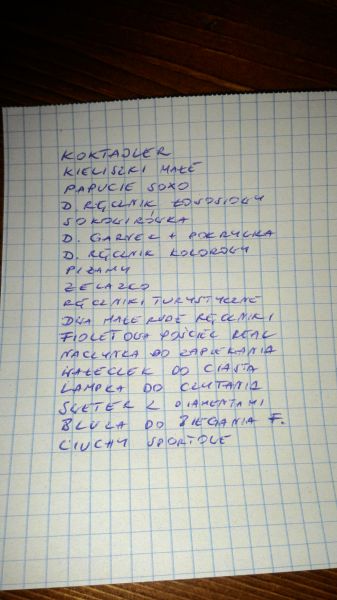 KOKTAJLER
KIELISZKI MAŁE
PAPUCIE SOXO
D RĘCZNIK ŁOSOSIOWY
SOKOWIRÓWKA
D. GARNEK + POKRYWKA
D. RĘCZNIK KOLOROWY
PIŻAMY
ŻELAZKO
RĘCZNIKI TURYSTYCZNE
DWA MAŁE RUDE RĘCZNIKI
FIOLETOWA POŚCIEL REAL
NACZYNKA DO ZAPIEKANIA
WAŁECZEK DO CIASTA
LAMPKA DO CZYTANIA
SWETER Z DIAMENTAMI
BLUZA DO BIEGANIA F.
CIUCHY SPORTOWE